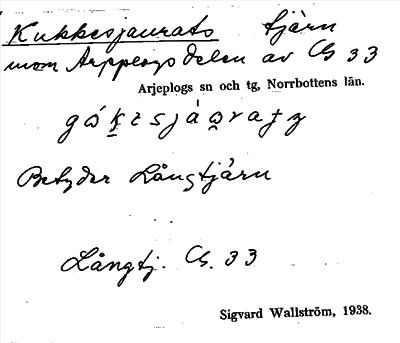 Kukkesjaurats tjärn
inom Arpplogsdelen av Cb 33
Arjeplogs sn och tg, Norrbottens län.
Betyder Långtjärn
Långtj. Cb. 33
Sigvard Wallström, 1938.